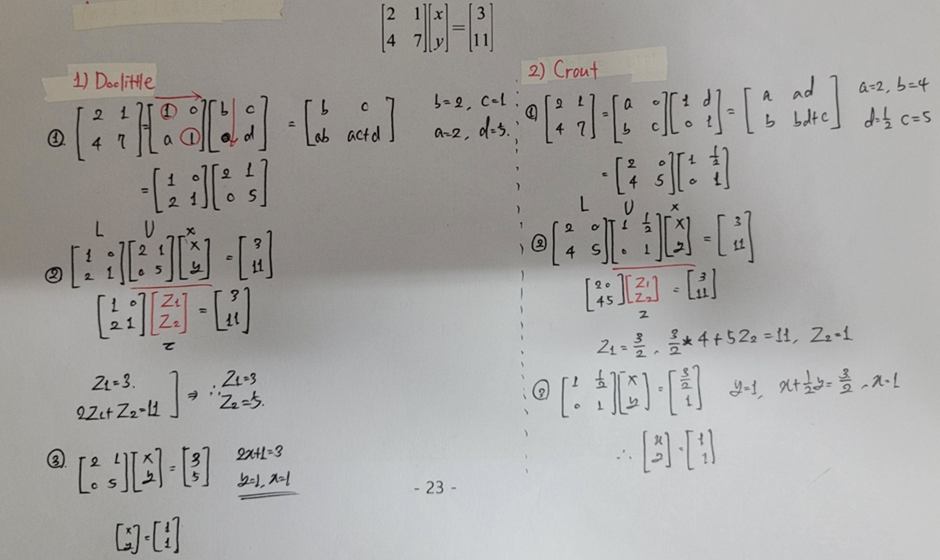 [2 1; 4 7][x; y] = [3; 11]
1) Doolittle
① [2 1; 4 7] = [1 0; a 1][b c; 0 d] = [b c; ab ac+d] b=2, c=1. a=2, d=5.
= [1 0; 2 1][2 1; 0 5]
L U x
② [1 0; 2 1][2 1; 0 5][x; y] = [3; 11]
[1 0; 2 1][Z1; Z2] = [3; 11]
z
Z1=3.
2Z1+Z2=11 ] ⇒ ∴ Z1=3 Z2=5.
③ [2 1; 0 5][x; y] = [3; 5] 2x+1=3
y=1, x=1
[x; y] = [1; 1]
2) Crout
① [2 1; 4 7] = [a 0; b c][1 d; 0 1] = [a ad; b bd+c] a=2, b=4 d=1/2 c=5
= [2 0; 4 5][1 1/2; 0 1]
L U x
② [2 0; 4 5][1 1/2; 0 1][x; y] = [3; 11]
[2 0; 4 5][Z1; Z2] = [3; 11]
z
Z1=3/2, 3/2*4+5Z2=11, Z2=1
③ [1 1/2; 0 1][x; y] = [3/2; 1] y=1, x+1/2y=3/2, x=1
∴ [x; y] = [1; 1]
- 23 -